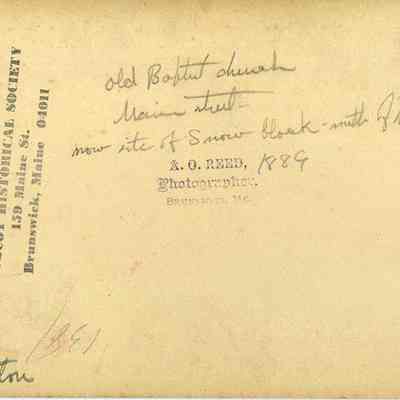 HISTORICAL SOCIETY
159 Maine St.
Brunswick, Maine 04011
Old Baptist church
Maine street
now site of Snow block - north of
A. O. REED, 1889
Photographer,
BRUNSWICK, ME.
1891